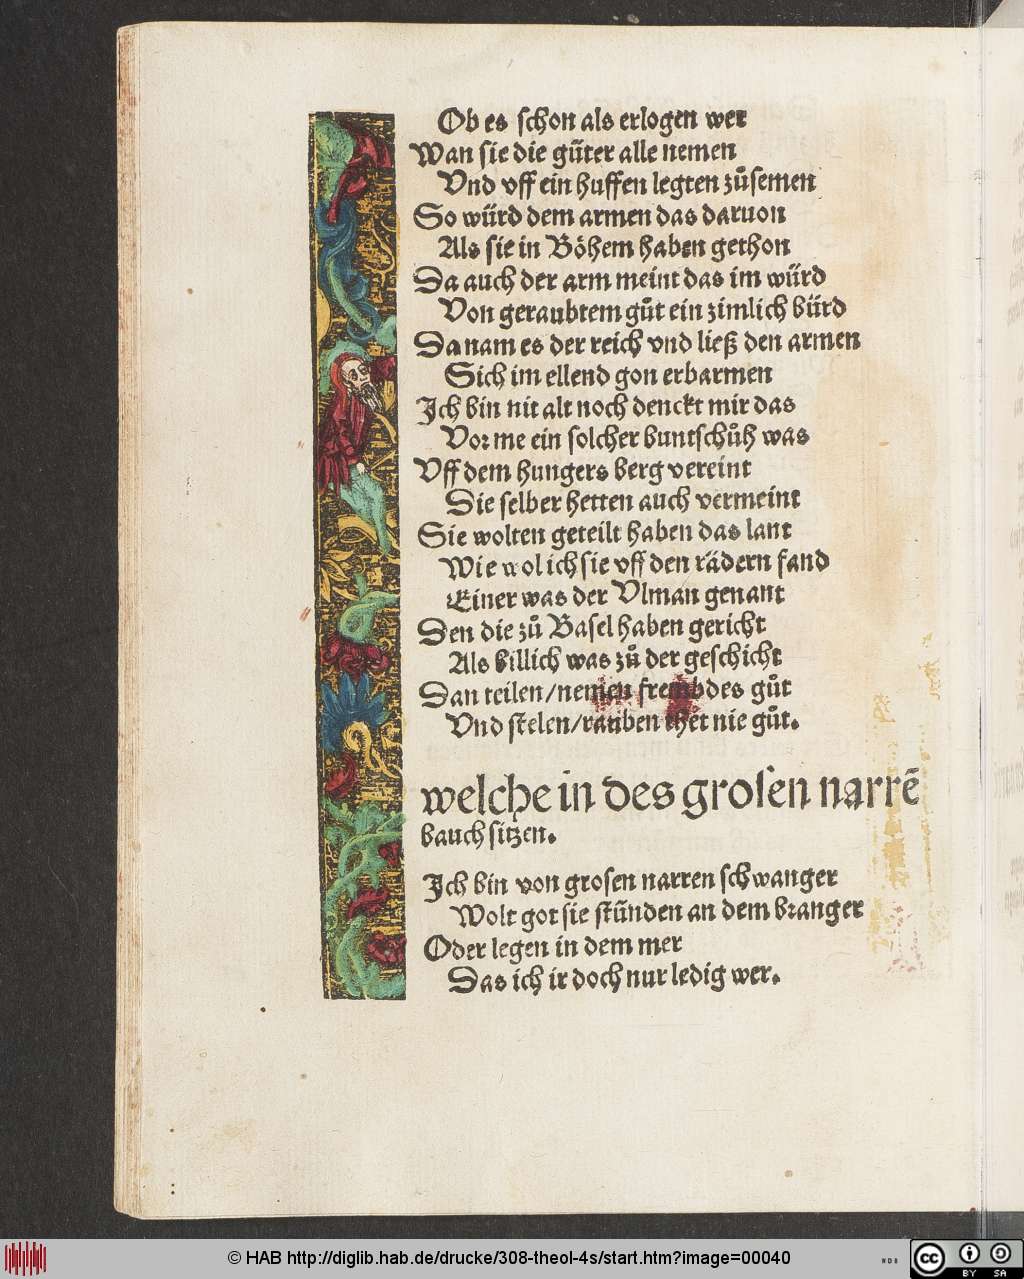 Ob es schon als erlogen wer
Wan sie die gůter alle nemen
Vnd vff ein huffen legten zůsemen
So würd dem armen das daruon
Als sie in Böhem haben gethon
Da auch der arm meint das im würd
Von geraubtem gůt ein zimlich bürd
Da nam es der reich vnd ließ den armen
Sich im ellend gon erbarmen
Ich bin nit alt noch denckt mir das
Vor me ein solcher buntschůh was
Vff dem hungers berg vereint
Die selber hetten auch vermeint
Sie wolten geteilt haben das lant
Wie wol ich sie vff den rädern fand
Einer was der Vlman genant
Den die zů Basel haben gericht
Als billich was zů der geschicht
Dan teilen/nemen frembdes gůt
Vnd stelen/rauben thet nie gůt.
welche in des grosen narrē
bauch sitzen.
Ich bin von grosen narren schwanger
Wolt got sie stünden an dem branger
Oder legen in dem mer
Das ich ir doch nur ledig wer.
© HAB http://diglib.hab.de/drucke/308-theol-4s/start.htm?image=00040
WDB
cc
BY SA